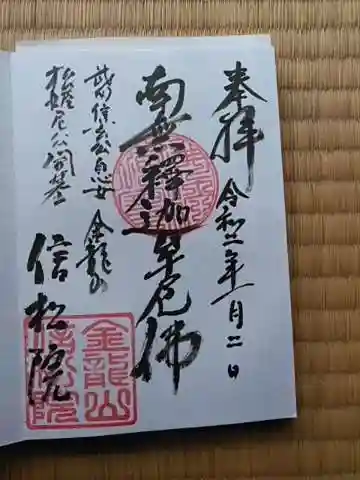 奉拝
令和二年一月二日
南無釋迦牟尼佛
金龍山
松姫尼公開基
信松院
金龍山
信松院